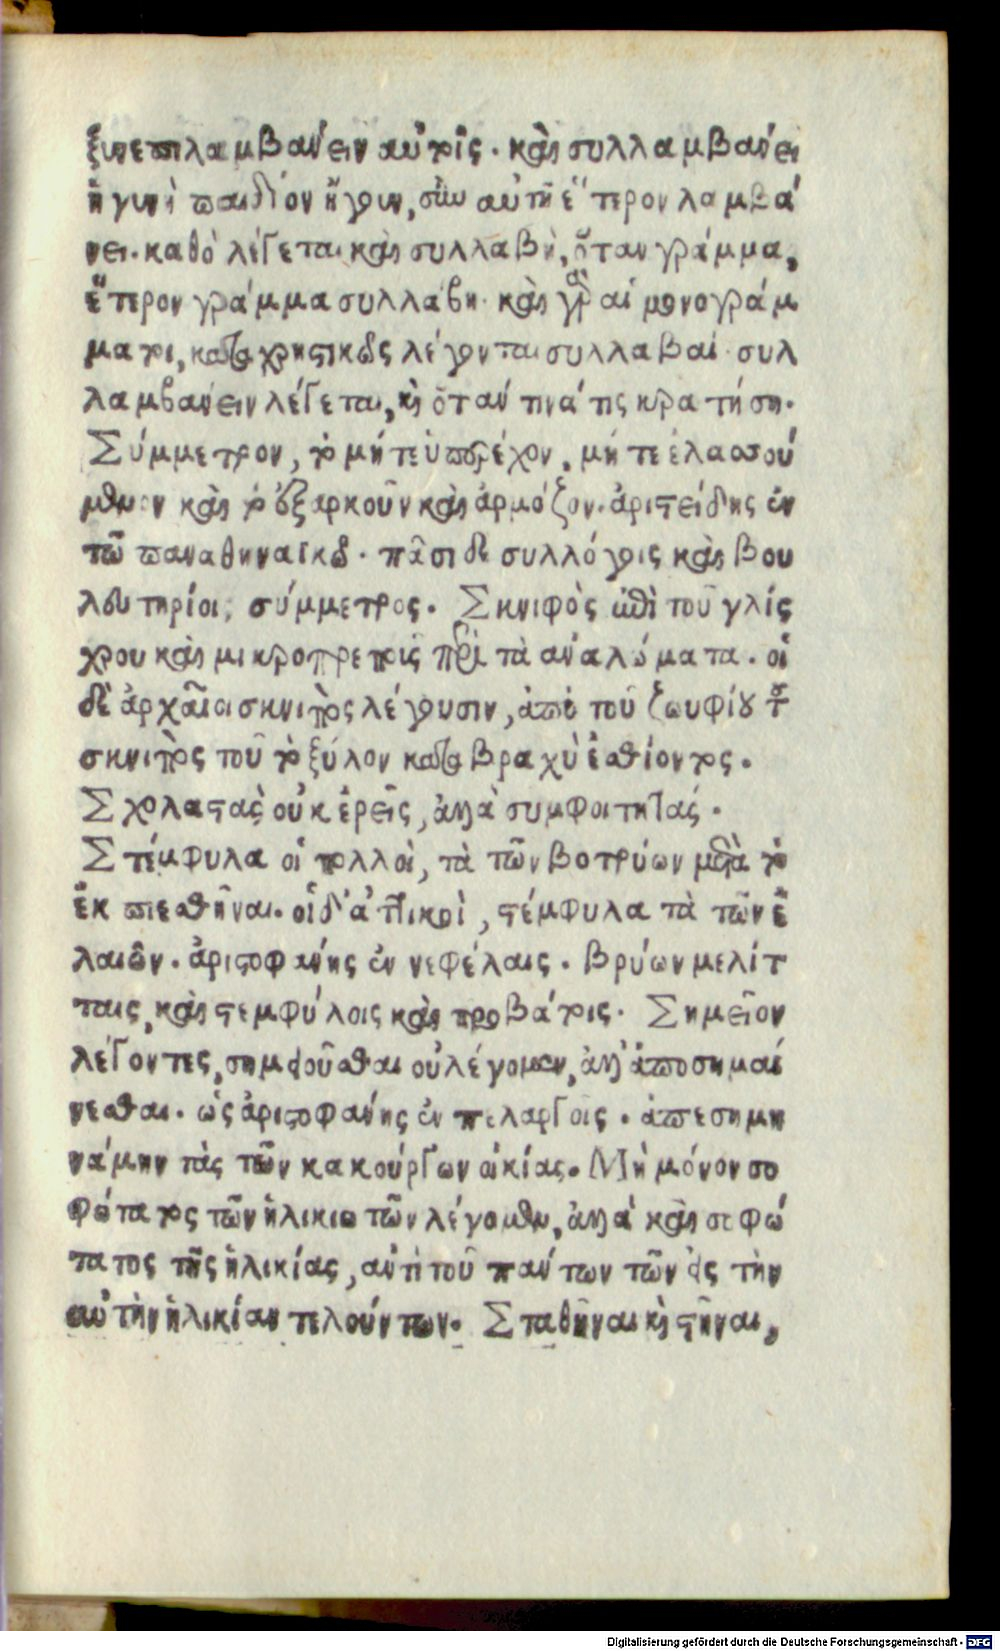 ξυνεπιλαμβάνειν αὐτοῖς. καὶ συλλαμβάνει
ἡ γυνὴ παιδίον ἤγουν, σὺν αὐτῇ ἕτερον λαμβά
νει. καθὸ λέγεται καὶ συλλαβὴ, ὅταν γράμμα,
ἕτερον γράμμα συλλάβῃ. καὶ γὰρ αἱ μονογράμ
ματοι, καταχρηστικῶς λέγονται συλλαβαί. συλ
λαμβάνειν λέγεται, καὶ ὅταν τινά τις κρατήσῃ.
Σύμμετρον, τὸ μήτε ὑπερέχον, μήτε ἐλασσού
μενον καὶ τὸ ἐξαρκοῦν καὶ ἁρμόζον. ἀριστείδης ἐν
τῶ παναθηναϊκῶ. πᾶσι δὲ συλλόγοις καὶ βου
λευτηρίοις σύμμετρος. Σκνιφὸς ἐπὶ τοῦ γλίς
χρου καὶ μικροπρεποῦς περὶ τὰ ἀναλώματα. οἱ
δὲ ἀρχαῖοι σκνιπὸς λέγουσιν, ἀπὸ τοῦ ζωυφίου τοῦ
σκνιπὸς τοῦ τὸ ξύλον κατὰ βραχὺ ἐσθίοντος.
Σχολαστὰς οὐκ ἐρεῖς, ἀλλὰ συμφοιτητάς.
Στέμφυλα οἱ πολλοὶ, τὰ τῶν βοτρύων μετὰ τὸ
ἐκπιεσθῆναι. οἱ δ' ἀττικοὶ, στέμφυλα τὰ τῶν ἐ
λαιῶν. ἀριστοφάνης ἐν νεφέλαις. βρύων μελίτ
ταις, καὶ στεμφύλοις καὶ προβάτοις. Σημεῖον
λέγοντες, σημειοῦσθαι οὐ λέγομεν, ἀλλ' ἀποσημαί
νεσθαι. ὡς ἀριστοφάνης ἐν πελαργοῖς. ἀπεσημη
νάμην τὰς τῶν κακούργων οἰκίας. Μὴ μόνον σο
φώτατος τῶν ἡλικιωτῶν λέγομεν, ἀλλὰ καὶ σοφώ
τατος τῆς ἡλικίας, ἀντὶ τοῦ πάντων τῶν εἰς τὴν
αὐτὴν ἡλικίαν τελούντων. Σταθῆναι καὶ στῆναι,
Digitalisierung gefördert durch die Deutsche Forschungsgemeinschaft - DFG